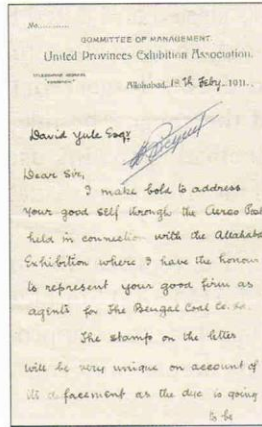 No...........
COMMITTEE OF MANAGEMENT
United Provinces Exhibition Association.
TELEGRAPHIC ADDRESS,
"EXHIBITION."
Allahabad, 18th Feby 1911.
David Yule Esqr
Dear Sir,
I make bold to address
your good self through the Aereo Post
held in connection with the Allahabad
Exhibition where I have the honour
to represent your good firm as
agents for The Bengal Coal Co. Ld.
The stamp on the letter
will be very unique on account of
its defacement as the die is going
to be